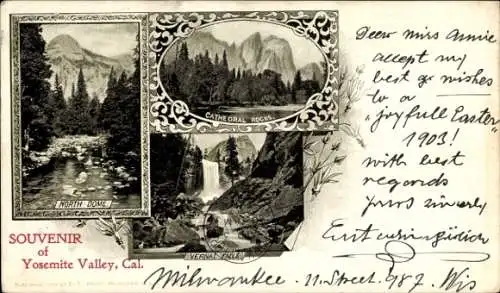 Dear miss Annie
accept my
best g wishes
to a
"joyfull Easter
1903!
with best
regards
yours sincerly
CATHEDRAL ROCKS.
NORTH DOME
VERNAL FALLS
SOUVENIR
of
Yosemite Valley, Cal.
Milwaukee 11. Street. 987. Wis